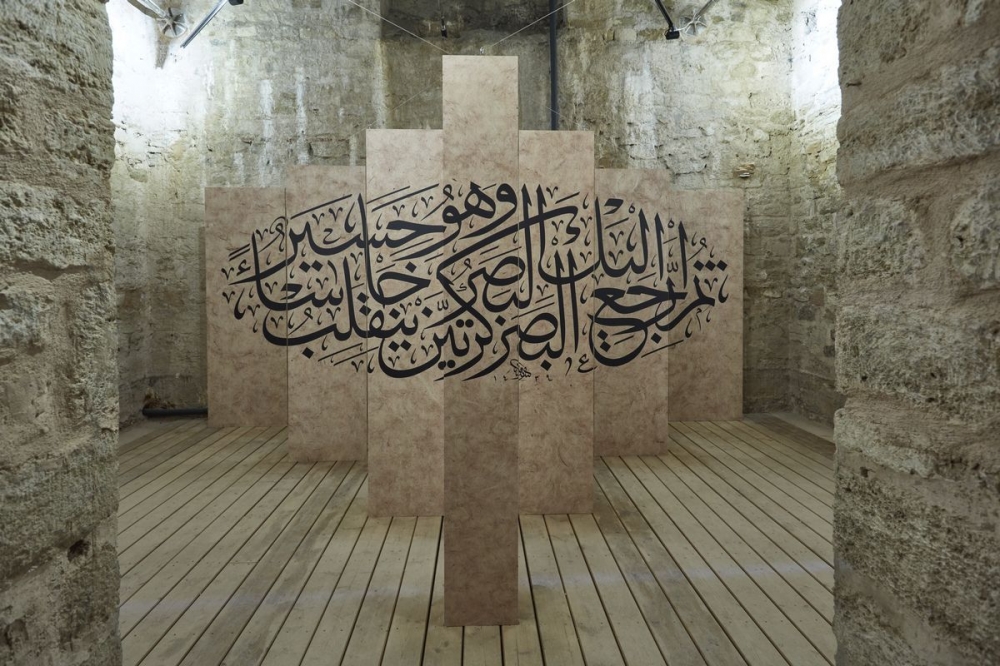 ثم ارجع البصر كرتين ينقلب
إليك البصر خاسئاً
وهو حسير